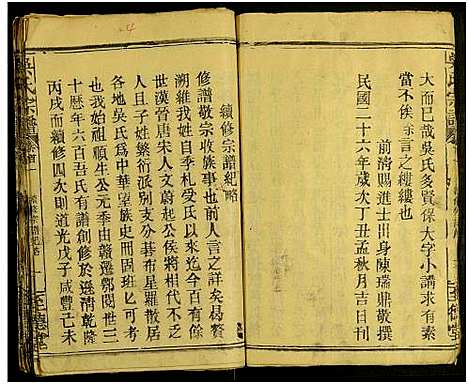 大而巳哉吳氏多賢保大字小講求有素
當不俟余言之縷縷也
前清賜進士出身陳瑞鼎撰
民國二十六年歲次丁丑孟秋月吉日刊
吳氏宗譜
至德堂
續修宗譜紀略
修譜敬宗收族事也前人言之詳矣曷贅
溯維我始自季札受氏以迄今百有餘
世漢晉唐宋人文蔚起公侯將相代不乏
人且子姓繁衍派別支分碁布星羅散居
各地吳氏爲中華望族史冊固班匕可考
也我始祖禎生公元季由
十餘年六百吾氏有譜創修於遜清乾隆
丙戌而續修四次則道光戊子咸豐己未
吳氏宗譜
至德堂